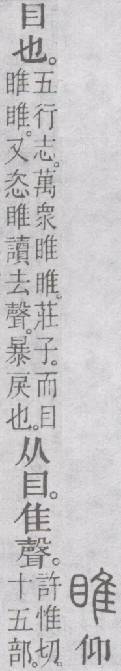 睢仰
目也。
五行志。萬衆睢睢。莊子。而目
睢睢。又恣睢讀去聲。暴戾也。
从目。隹聲。
許惟切。
十五部。